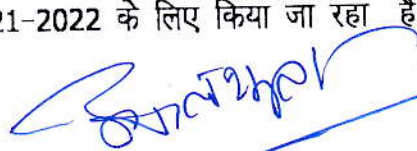 21-2022 के लिए किया जा रहा है